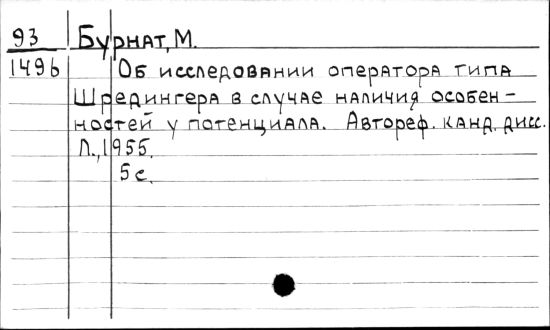 93 Бурнат, М.
1496 Об исследовании оператора типа
Шредингера в случае наличия особен-
ностей у потенциала. Автореф. канд. дисс.
Л., 1955.
5 с.